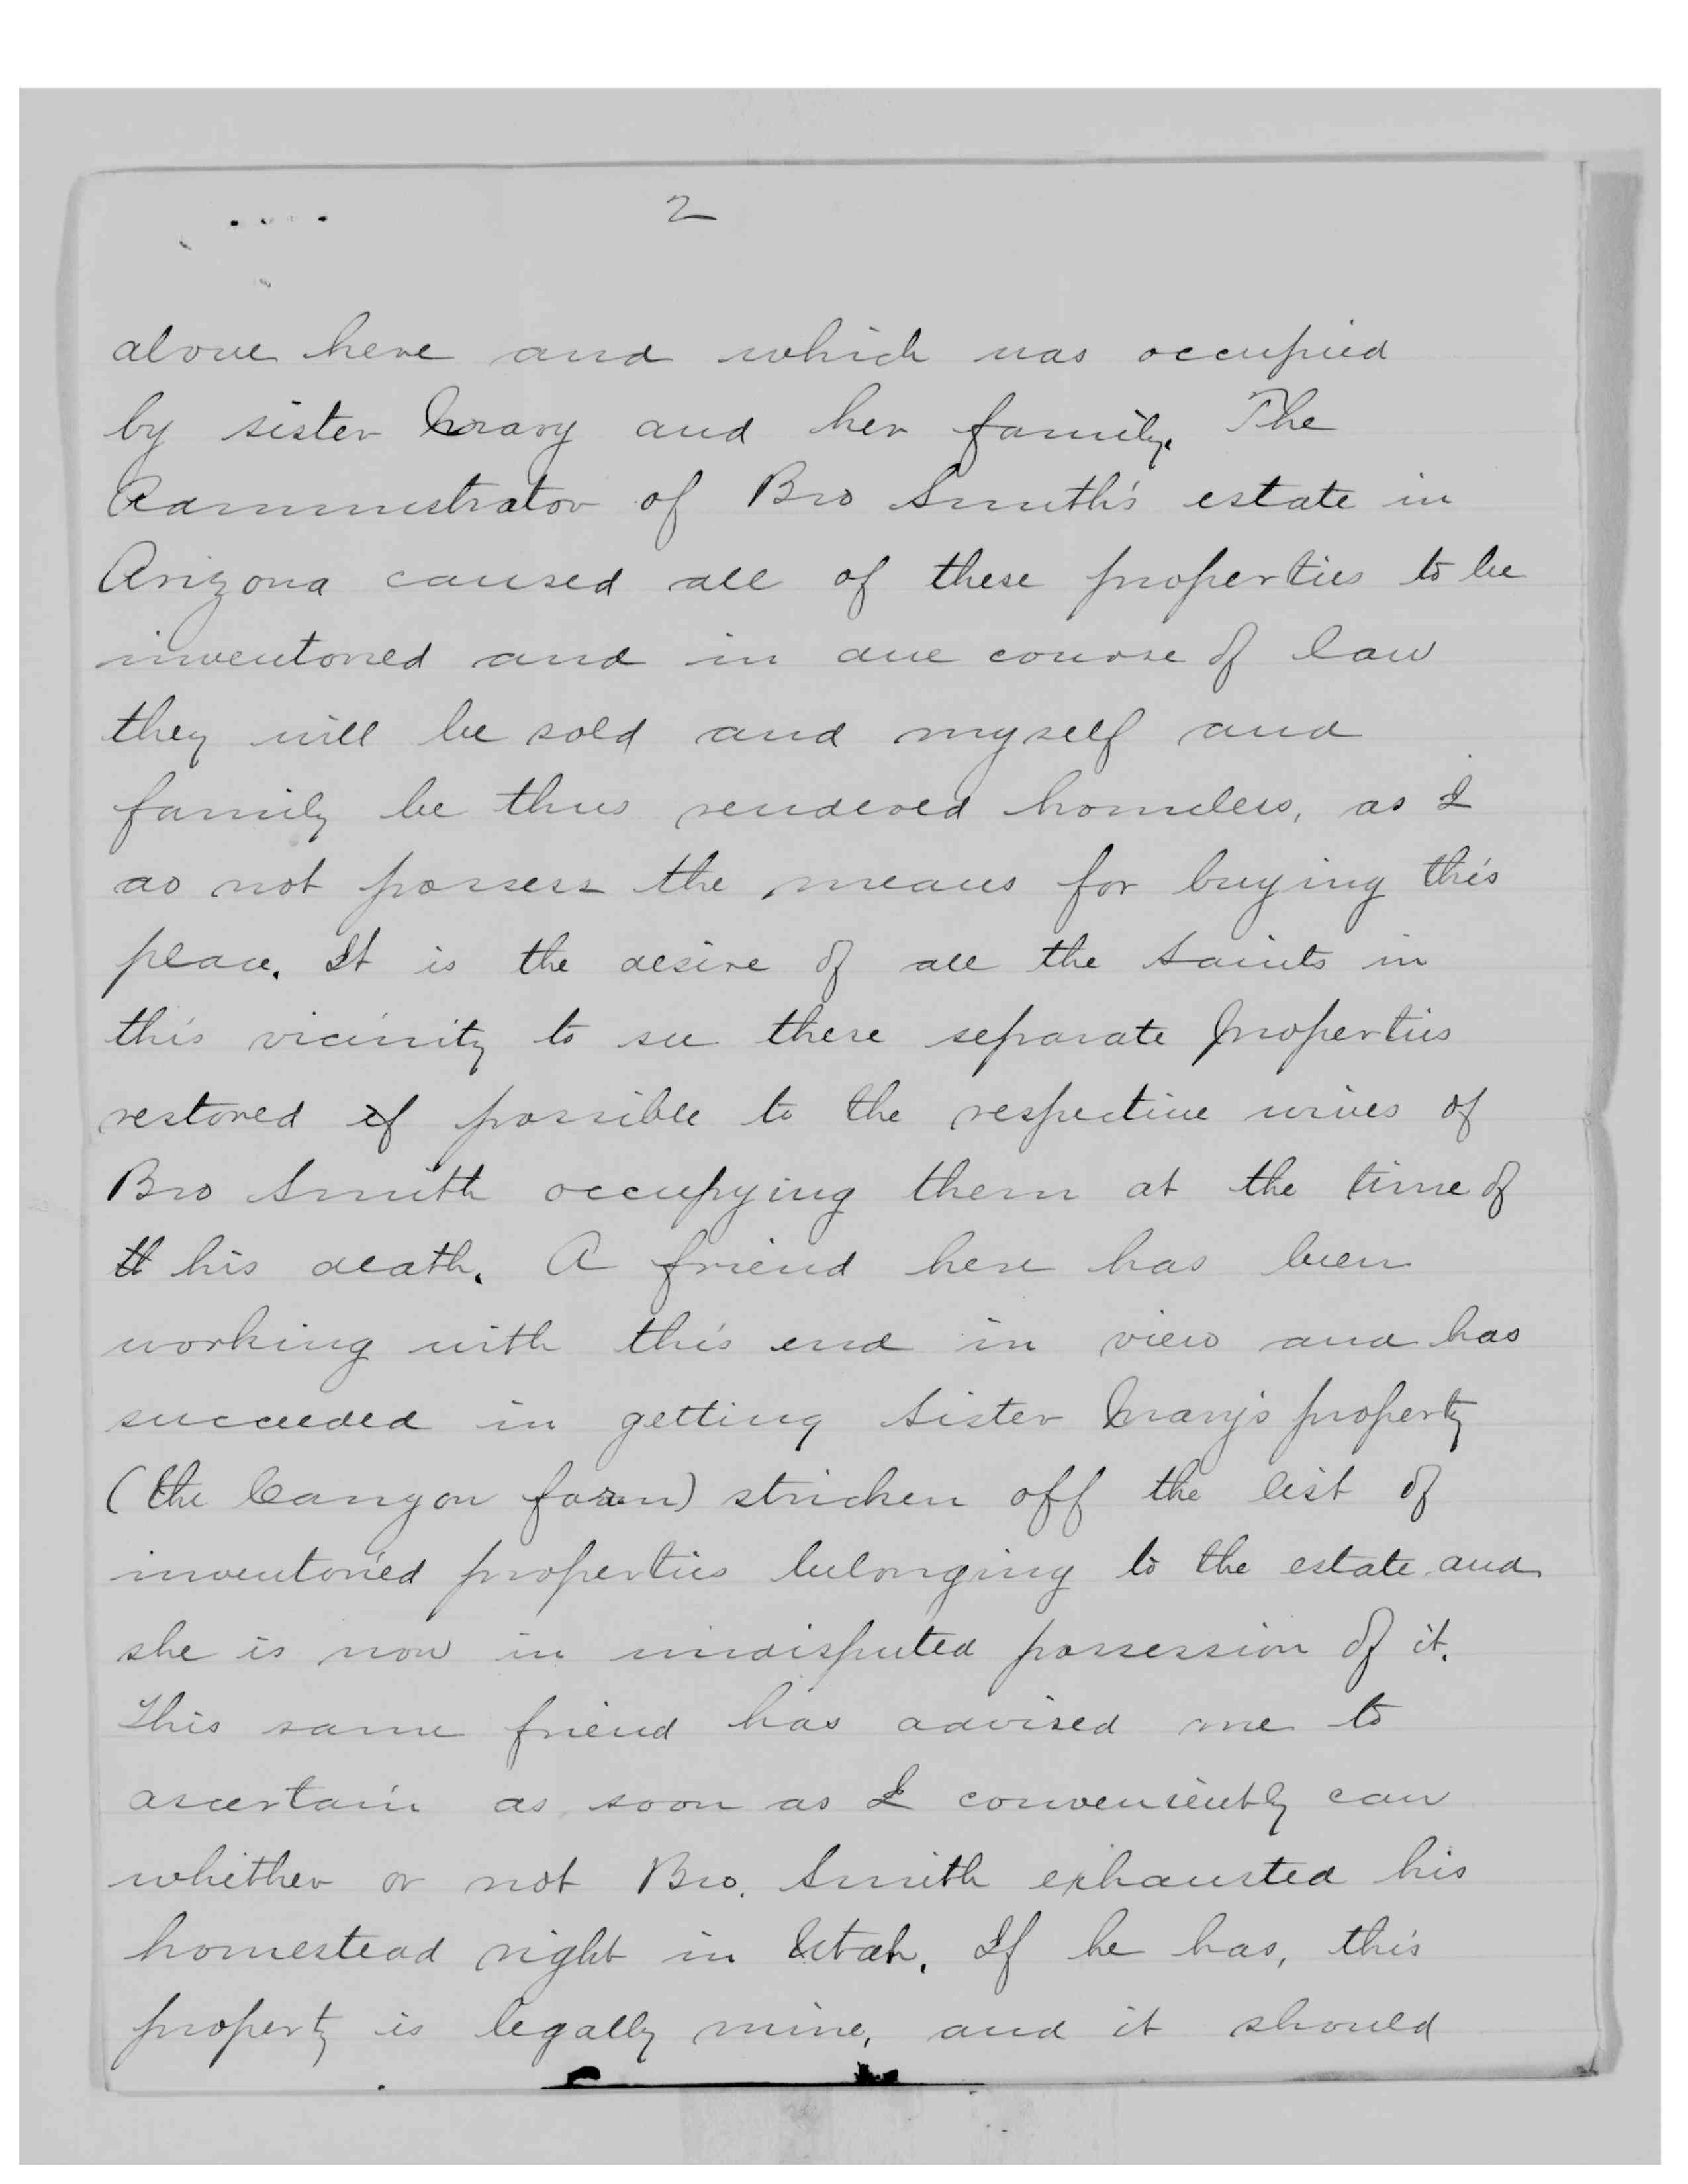 2
above here and which was occupied
by sister Mary and her family. The
Administrator of Bro Smith's estate in
Arizona caused all of these properties to be
inventoried and in due course of law
they will be sold and myself and
family be thus rendered homeless, as I
do not possess the means for buying this
place. It is the desire of all the Saints in
this vicinity to see these separate properties
restored if possible to the respective wives of
Bro Smith occupying them at the time of
th his death. A friend here has been
working with this end in view and has
succeeded in getting Sister Mary's property
(the Canyon farm) stricken off the list of
inventoried properties belonging to the estate and
she is now in undisputed possession of it.
This same friend has advised me to
ascertain as soon as I conveniently can
whither or not Bro. Smith exhausted his
homestead right in Utah. If he has, this
property is legally mine, and it should